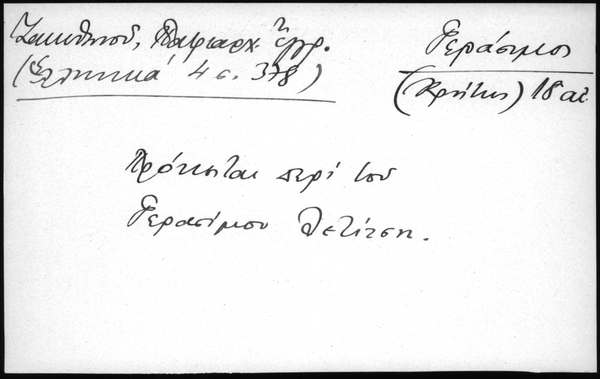 Ζακυθηνού, Πατριαρχ. έγγρ.
(Ελληνικά 4 σ. 378)
Γεράσιμος
(Κρήτης) 18 αἰ.
Πρόκειται περί του
Γερασίμου Λετίτση.